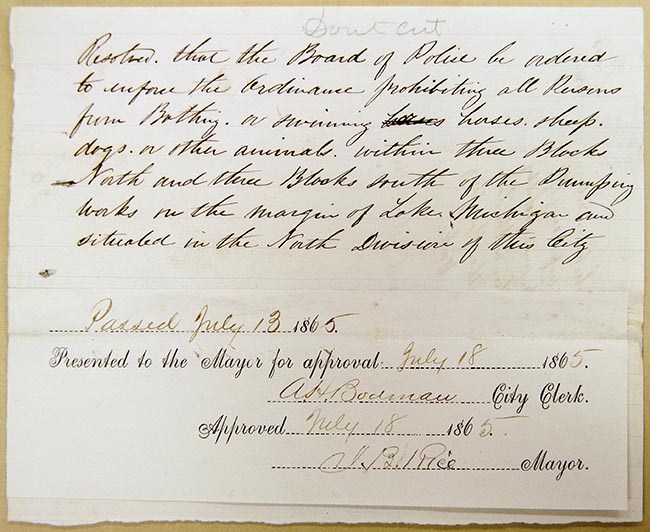 Dont cut
Resolved. that the Board of Police be ordered
to enforce the Ordinance prohibiting all Persons
from Bathing. or swimming horses. sheep.
dogs. or other animals. within three Blocks
North and three Blocks south of the Pumping
works on the margin of Lake Michigan and
situated in the North Division of this City
Passed July 13 1865.
Presented to the Mayor for approval July 18 1865.
A H Bodman City Clerk.
Approved July 18 1865.
J. B. Rice Mayor.